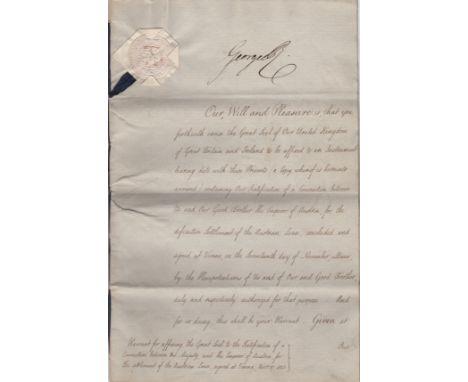 George R.
Our Will and Pleasure is that you
forthwith cause the Great Seal of Our United Kingdom
of Great Britain and Ireland to be affixed to an Instrument
bearing date with these Presents (a copy whereof is hereunto
annexed) containing Our Ratification of a Convention between
Us and Our Good Brother the Emperor of Austria, for the
definitive Settlement of the Austrian Loan, concluded and
signed at Vienna, on the Seventeenth day of November,
by the Plenipotentiaries of Us and of Our said Good Brother,
duly and respectively authorized for that purpose. And
for so doing, this shall be your Warrant. Given at
Our
Warrant for affixing the Great Seal to the Ratification of a
Convention between His Majesty and the Emperor of Austria for
the settlement of the Austrian Loan, signed at Vienna, Novr. 17. 1823